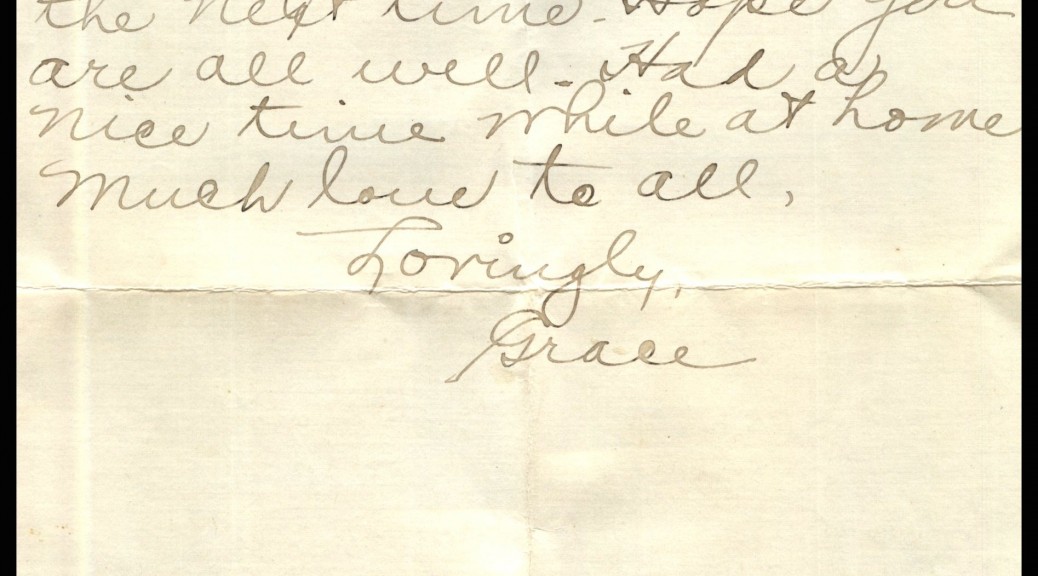 the next time. Hope you
are all well. Had a
nice time while at home
Much love to all,
Lovingly,
Grace